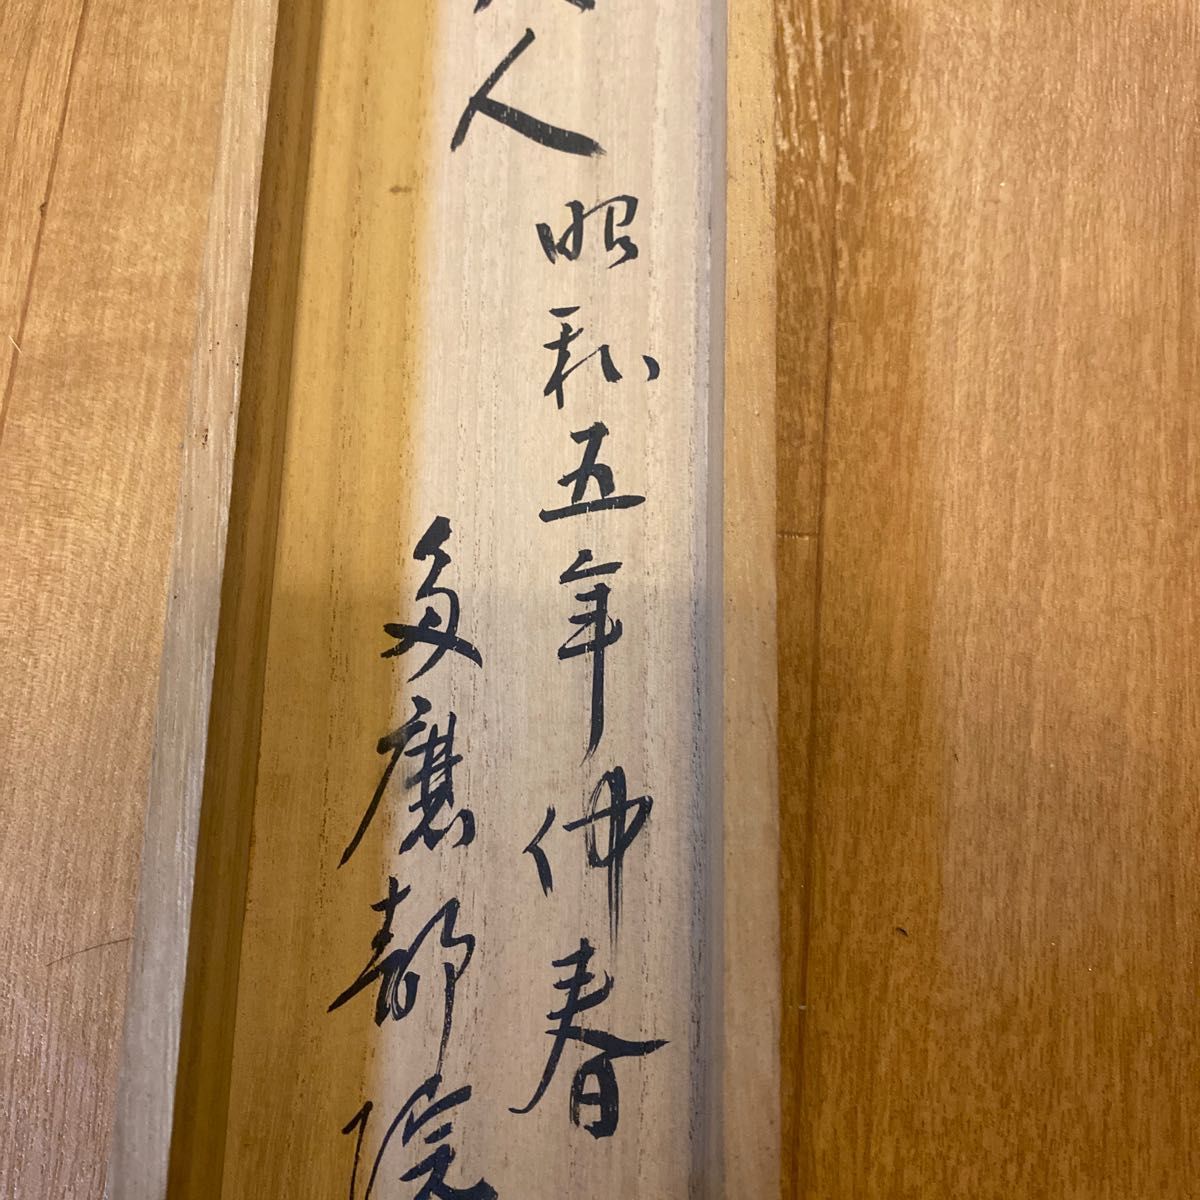 人
昭和五年仲春
多麿都院